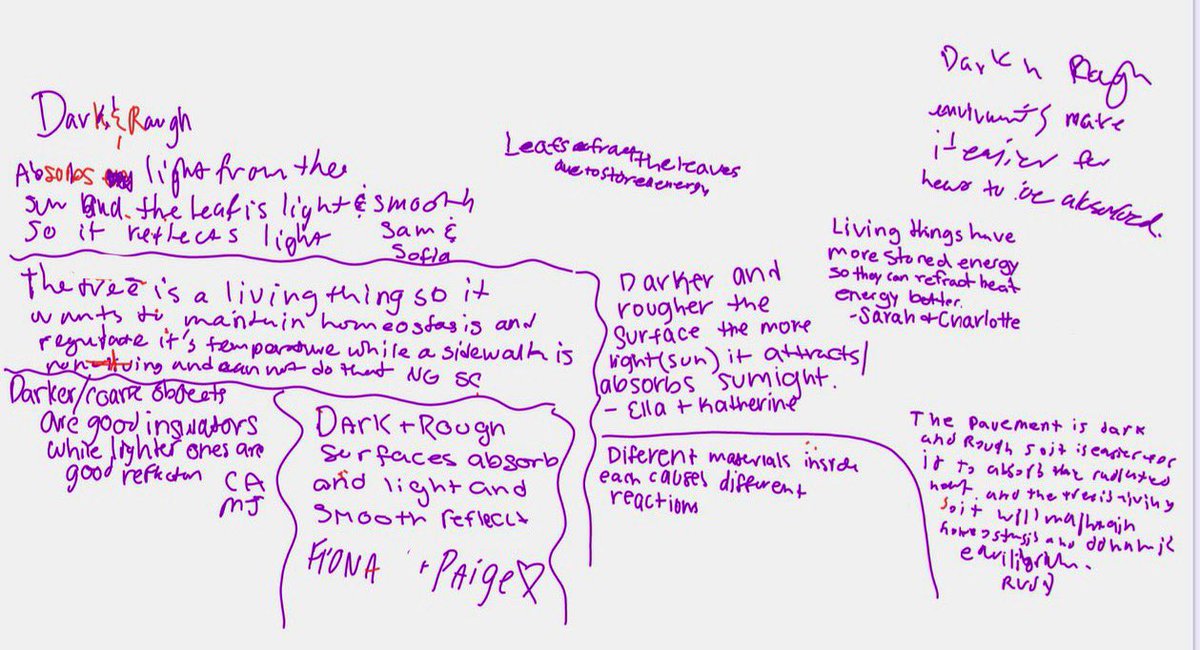 Dark & Rough
Absorbs light from the
sun and the leaf is light & smooth
so it reflects light
Sam &
Sofia
The tree is a living thing so it
wants to maintain homeostasis and
regulate it's temperature while a sidewalk is
non-living and can not do that NG SC
Darker/coarse objects
are good insulators
while lighter ones are
good
CA
MJ
Dark + Rough
surfaces absorb
and light and
smooth reflect
FIONA + PAige♡
Leafs the leaves
due to stored energy
Darker and
rougher the
surface the more
light (sun) it attracts/
absorbs
- Ella + Katherine
Diferent materials inside
each causes different
reactions
Dark n Rough
make
it easier for
to be absorbed.
Living things have
more stored energy
so they can refract heat
energy better.
-Sarah + Charlotte
The pavement is dark
and Rough so it is easier for
it to absorb the radiated
heat. and the tree is a living
so it will maintain
homeostasis and